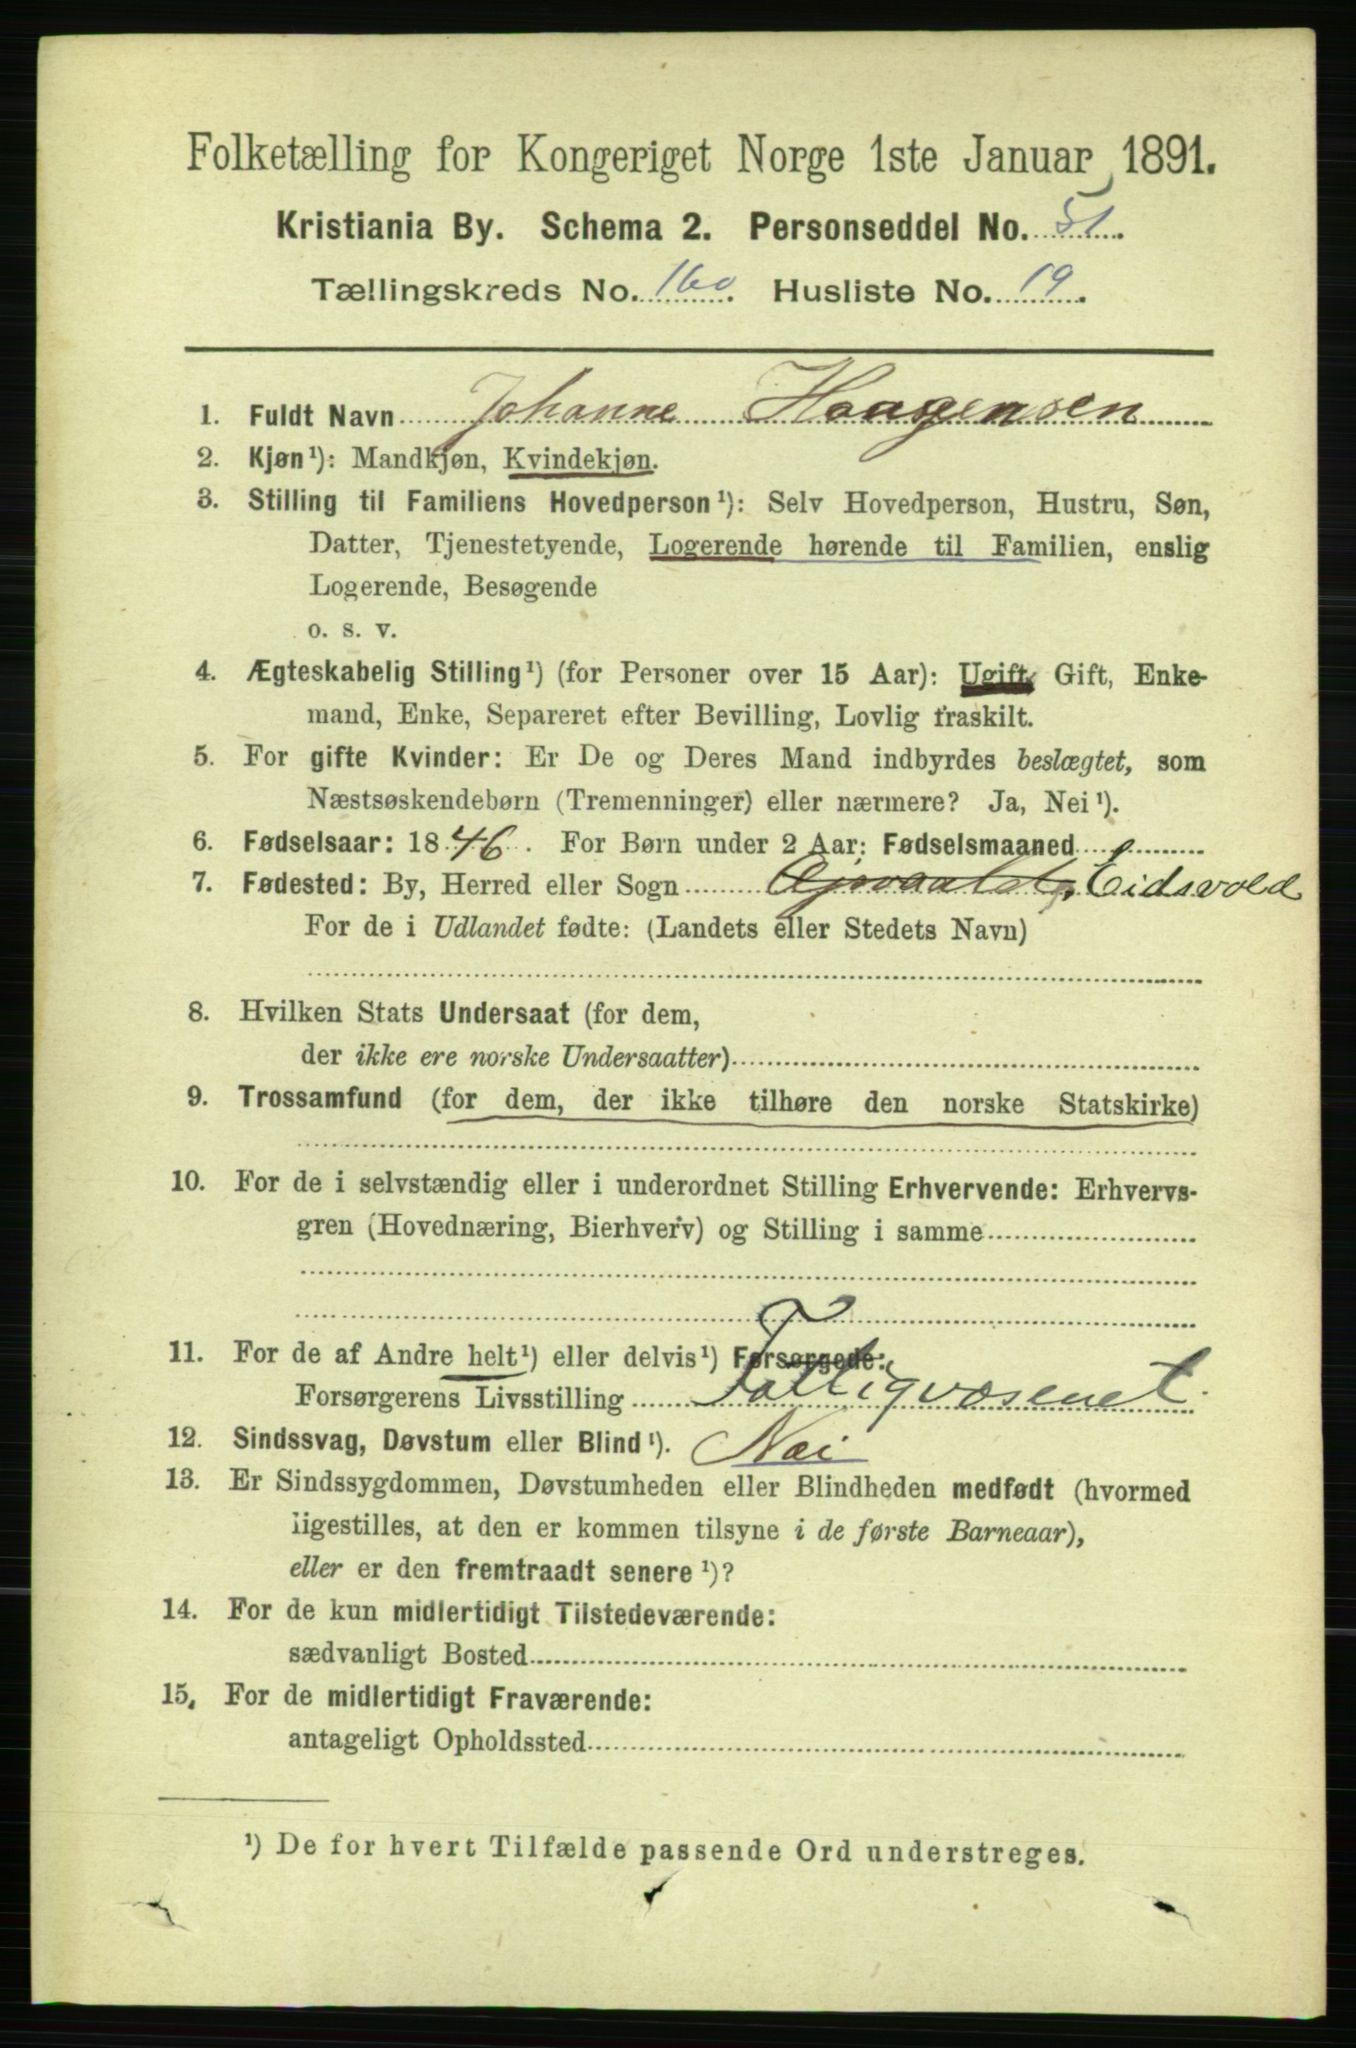 Folketælling for Kongeriget Norge 1ste Januar 1891.
Kristiania By. Schema 2. Personseddel No. 51.
Tællingskreds No. 160. Husliste No. 19.
1. Fuldt Navn Johanne Haagensen
2. Kjøn¹): Mandkjøn, Kvindekjøn.
3. Stilling til Familiens Hovedperson¹): Selv Hovedperson, Hustru, Søn,
Datter, Tjenestetyende, Logerende hørende til Familien, enslig
Logerende, Besøgende
o. s. v.
4. Ægteskabelig Stilling¹) (for Personer over 15 Aar): Ugift, Gift, Enke-
mand, Enke, Separeret efter Bevilling, Lovlig fraskilt.
5. For gifte Kvinder: Er De og Deres Mand indbyrdes beslægtet, som
Næstsøskendebørn (Tremenninger) eller nærmere? Ja, Nei¹).
6. Fødselsaar: 1846. For Børn under 2 Aar: Fødselsmaaned
7. Fødested: By, Herred eller Sogn Eidsvold
For de i Udlandet fødte: (Landets eller Stedets Navn)
8. Hvilken Stats Undersaat (for dem,
der ikke ere norske Undersaatter)
9. Trossamfund (for dem, der ikke tilhøre den norske Statskirke)
10. For de i selvstændig eller i underordnet Stilling Erhvervende: Erhvervs-
gren (Hovednæring, Bierhverv) og Stilling i samme
11. For de af Andre helt¹) eller delvis¹) Forsørgede:
Forsørgerens Livsstilling Fattigvæsenet
12. Sindssvag, Døvstum eller Blind¹). Nei
13. Er Sindssygdommen, Døvstumheden eller Blindheden medfødt (hvormed
ligestilles, at den er kommen tilsyne i de første Barneaar),
eller er den fremtraadt senere¹)?
14. For de kun midlertidigt Tilstedeværende:
sædvanligt Bosted
15. For de midlertidigt Fraværende:
antageligt Opholdssted
¹) De for hvert Tilfælde passende Ord understreges.